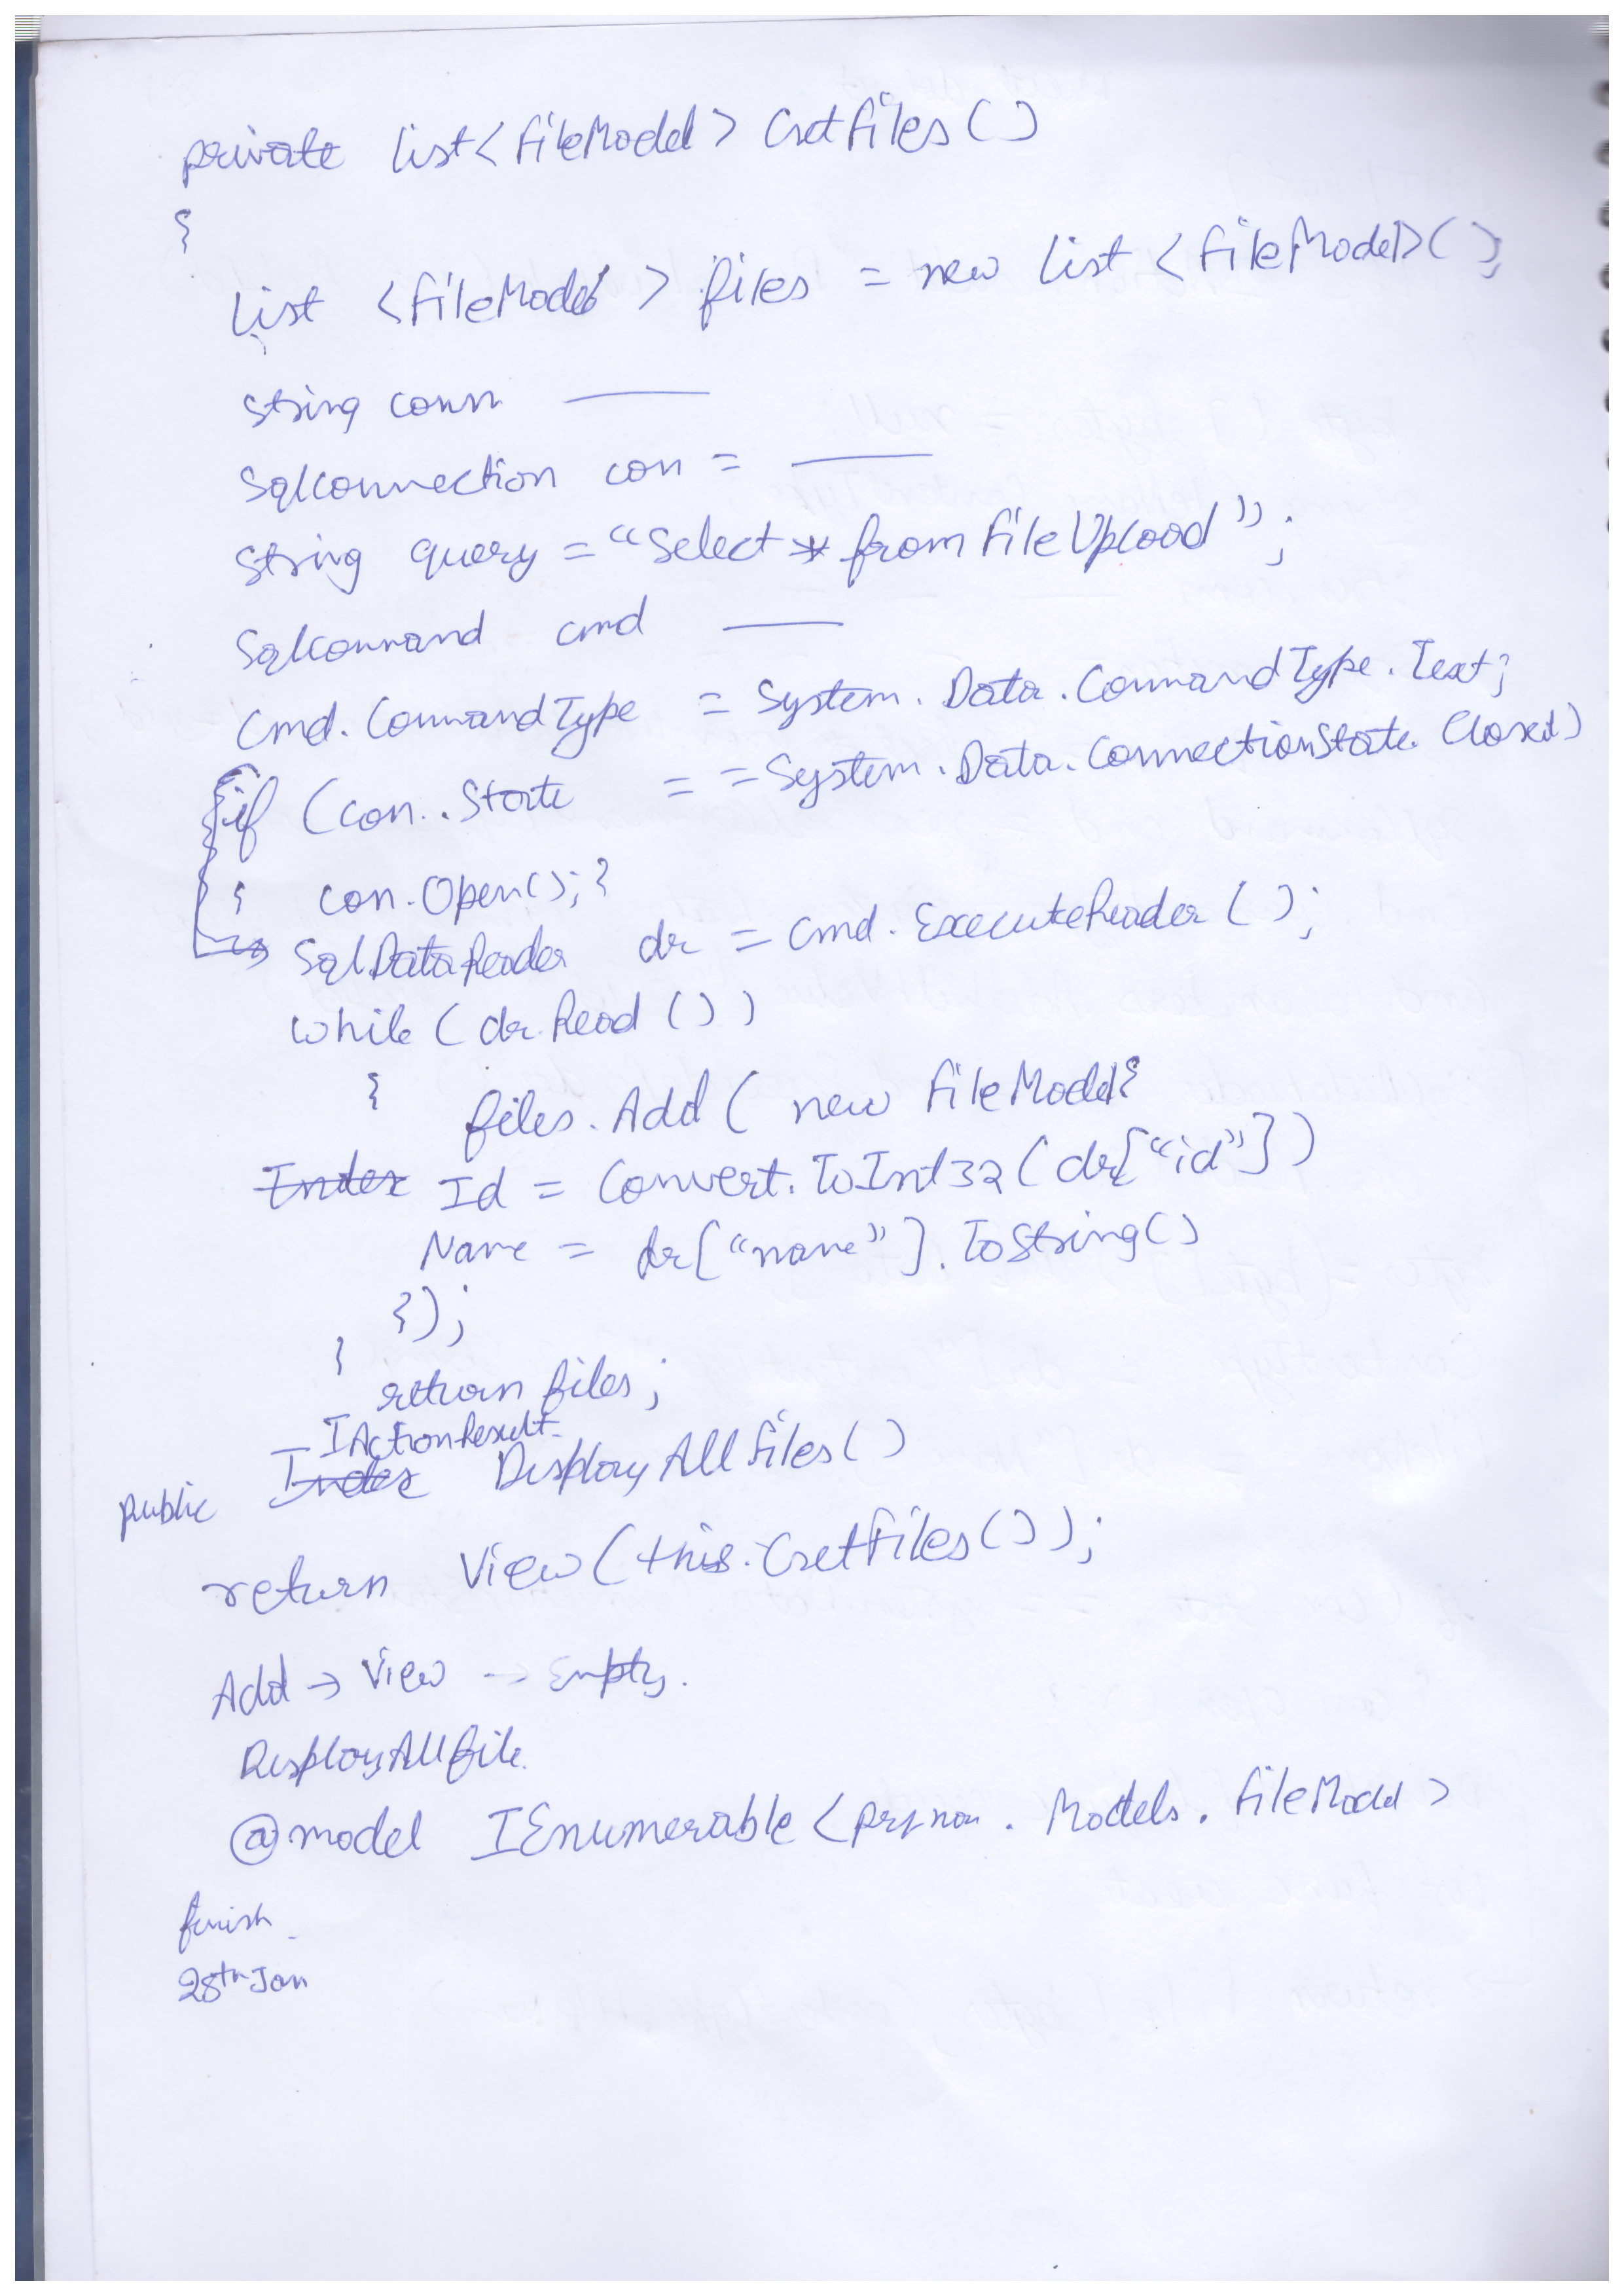 private List<FileModel> GetFiles()
{
List <FileModel> files = new List <FileModel>();
string conn ——
Sqlconnection con = ——
String query = "Select * from FileUpload";
Sqlcommand cmd ——
Cmd.CommandType = System.Data.CommandType.Text;
if (con..State == System.Data.ConnectionState.Closed)
{ con.Open();}
SqlDataReader dr = cmd.ExecuteReader();
while (dr.Read())
{ files.Add( new FileModel{
Index Id = Convert.ToInt32(dr["id"])
Name = dr["name"].ToString()
});
}
return files;
IActionResult
public Index DisplayAllFiles()
return View(this.GetFiles());
Add → View → Empty.
DisplayAllfile.
@model IEnumerable<prjnam.Models.FileModel>
finish
28th Jan